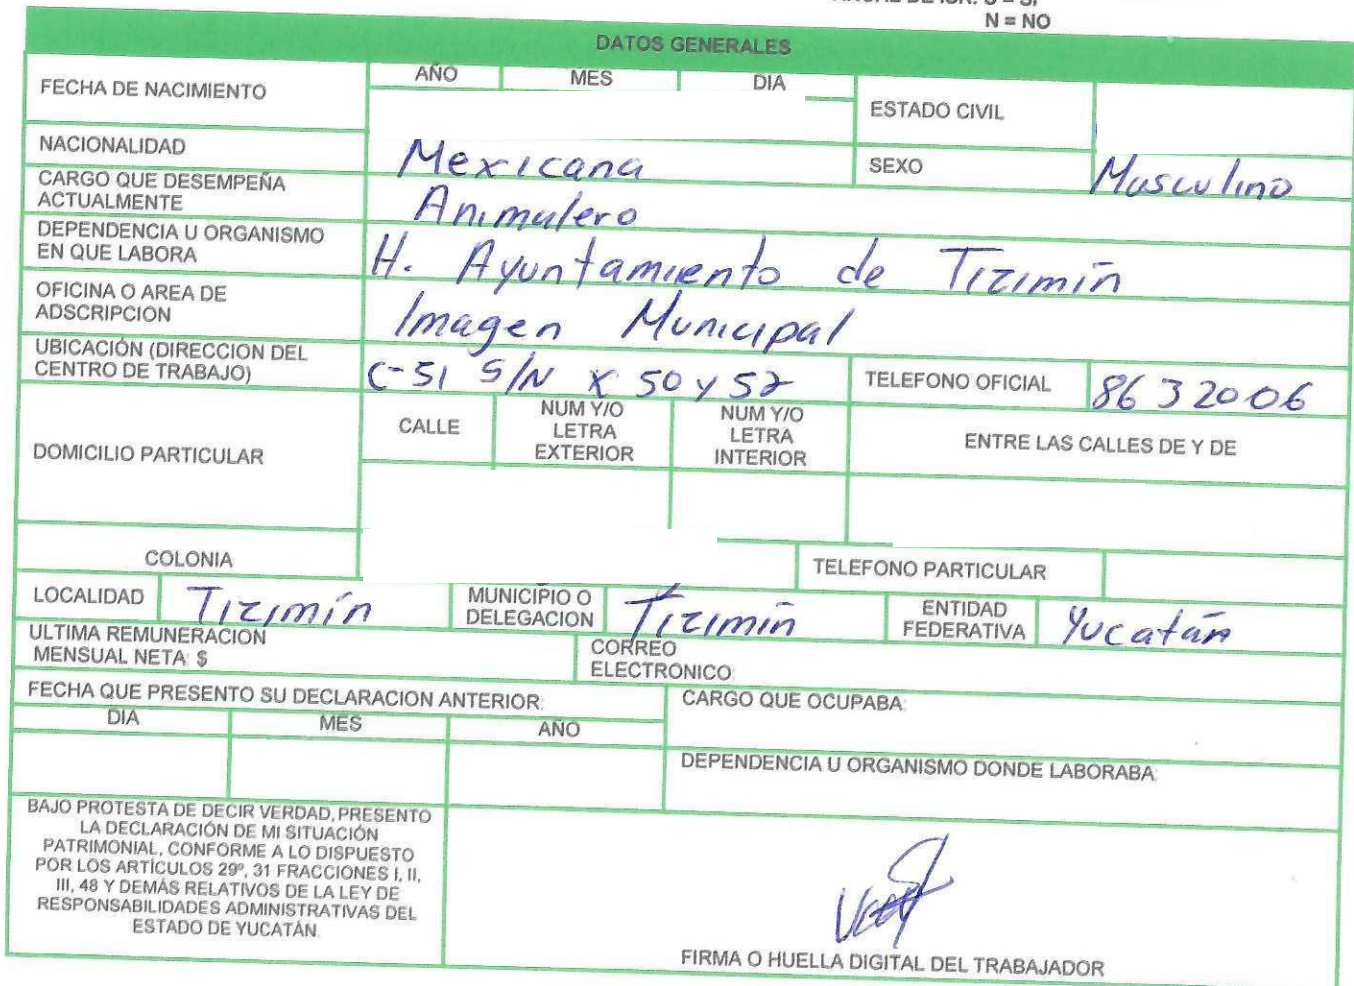 N = NO
DATOS GENERALES
FECHA DE NACIMIENTO
AÑO MES DIA
ESTADO CIVIL
NACIONALIDAD Mexicana SEXO Masculino
CARGO QUE DESEMPEÑA
ACTUALMENTE Animalero
DEPENDENCIA U ORGANISMO
EN QUE LABORA H. Ayuntamiento de Tizimín
OFICINA O AREA DE
ADSCRIPCION Imagen Municipal
UBICACIÓN (DIRECCION DEL
CENTRO DE TRABAJO) C-51 S/N x 50 y 52 TELEFONO OFICIAL 86 3 20 06
DOMICILIO PARTICULAR
CALLE
NUM Y/O
LETRA
EXTERIOR
NUM Y/O
LETRA
INTERIOR
ENTRE LAS CALLES DE Y DE
COLONIA
TELEFONO PARTICULAR
LOCALIDAD Tizimín
MUNICIPIO O
DELEGACION Tizimín
ENTIDAD
FEDERATIVA Yucatán
ULTIMA REMUNERACION
MENSUAL NETA: $
CORREO
ELECTRONICO:
FECHA QUE PRESENTO SU DECLARACION ANTERIOR:
DIA MES AÑO
CARGO QUE OCUPABA:
DEPENDENCIA U ORGANISMO DONDE LABORABA:
BAJO PROTESTA DE DECIR VERDAD, PRESENTO
LA DECLARACIÓN DE MI SITUACIÓN
PATRIMONIAL, CONFORME A LO DISPUESTO
POR LOS ARTÍCULOS 29º, 31 FRACCIONES I, II,
III, 48 Y DEMÁS RELATIVOS DE LA LEY DE
RESPONSABILIDADES ADMINISTRATIVAS DEL
ESTADO DE YUCATÁN.
FIRMA O HUELLA DIGITAL DEL TRABAJADOR